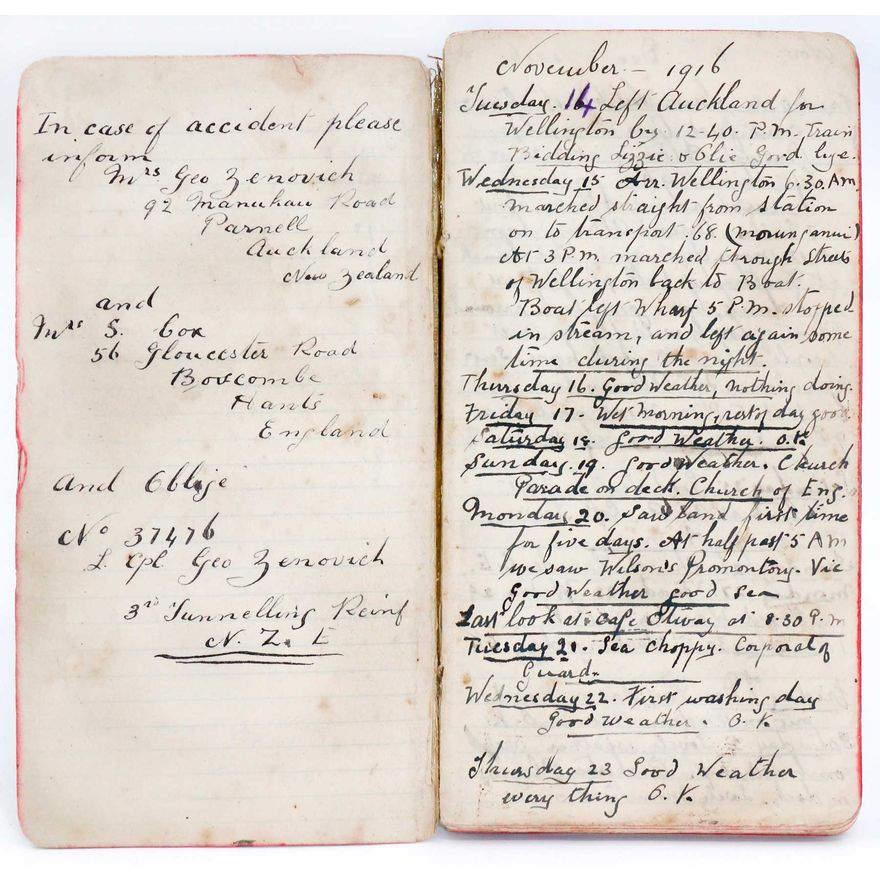 In case of accident please
inform
Mrs Geo Zenovich
92 Manukau Road
Parnell
Auckland
New Zealand
and
Mrs S. Cox
56 Gloucester Road
Boscombe
Hants
England
And Oblige
No 37476
L. Cpl. Geo Zenovich
3rd Tunnelling Reinf
N. Z. E
November - 1916
Tuesday. 14 Left Auckland for
Wellington by 12-40. P.M. Train
Bidding Lizzie & Olie Good bye.
Wednesday 15 Arr. Wellington 6.30. AM
marched straight from station
on to transport. 68. (morunganui)
At 3 P.M. marched through Streets
of Wellington back to Boat.
Boat left Wharf 5 P.M. stopped
in stream, and left again some
time during the night.
Thursday 16. Good Weather, nothing doing.
Friday 17. Wet Morning, rest of day good
Saturday 18. Good Weather. O.K
Sunday. 19. Good Weather. Church
Parade on deck. Church of Eng.
Monday 20. Saw land first time
for five days. At half past 5 AM
we saw Wilson's Promontory. Vic
Good Weather good sea
Last look at Cape Otway at 8.30 P.m
Tuesday 21. Sea choppy. Corporal of
Guard.
Wednesday 22. First washing day
Good Weather. O.K
Thursday 23 Good Weather
every thing O.K.